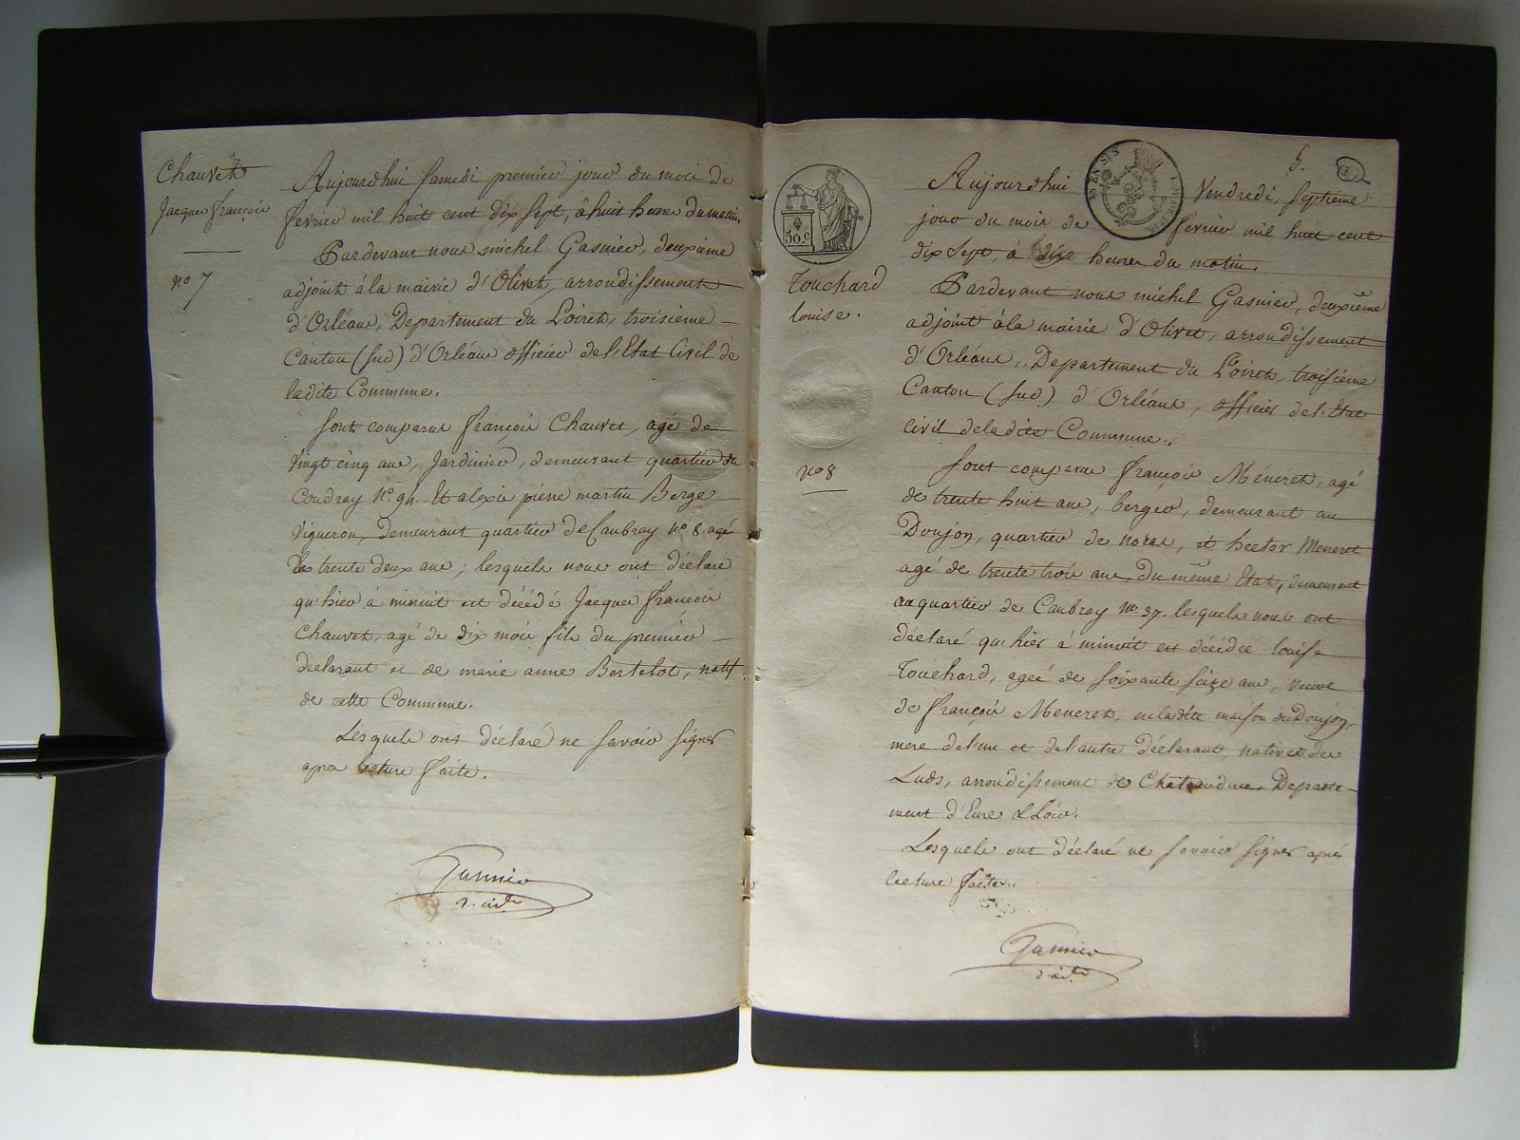 Chauvet
Jacques François
no 7
Aujourd'hui Samedi premier jour du mois de
fevrier mil huit cent dix sept, à huit heures du matin.
Pardevant nous michel Gasnier, deuxième
adjoint à la mairie d'Olivet, arrondissement
d'Orléans, Departement du Loiret, troisieme
Canton (sud) d'Orléans officier de l'Etat Civil de
ladite Commune.
Sont comparus françois Chauvet, agé de
vingt cinq ans, Jardinier, demeurant quartier du
Coudray No. 94. Et alexis pierre martin Berge
Vigneron, demeurant quartier de Caubray no 8. agé
de trente deux ans; lesquels nous ont déclaré
qu'hier à minuit est décédé Jacques françois
Chauvet, agé de dix mois fils du premier
declarant et de marie anne Bertelot, natif
de cette Commune.
Lesquels ont déclaré ne savoir signer
après lecture faite.
Gasnier
d. adt.
5.
50 c
Touchard
louise.
no 8
Aujourd'hui Vendredi, septieme
jour du mois de fevrier mil huit cent
dix sept, à dix heures du matin.
Pardevant nous michel Gasnier, deuxième
adjoint à la mairie d'Olivet, arrondissement
d'Orléans, Departement du Loiret, troisieme
Canton (sud) d'Orléans, officier de l'Etat
Civil de la dite Commune.
Sont comparus françois Meneret, agé
de trente huit ans, berger, demeurant au
Donjon, quartier de noras, et hector Meneret
agé de trente trois ans, du même Etat, demeurant
au quartier de Caubray no. 37. lesquels nous ont
déclaré qu'hier à minuit est décédée louise
Touchard, ageé de soixante seize ans, veuve
de françois Meneret, en ladite maison du Donjon,
mere de l'un et de l'autre déclarant, native de
Luds, arrondissement de Chateaudun, Departe-
ment d'Eure & Loir.
Lesquels ont déclaré ne savoir signer après
lecture faite.
Gasnier
d. adt.